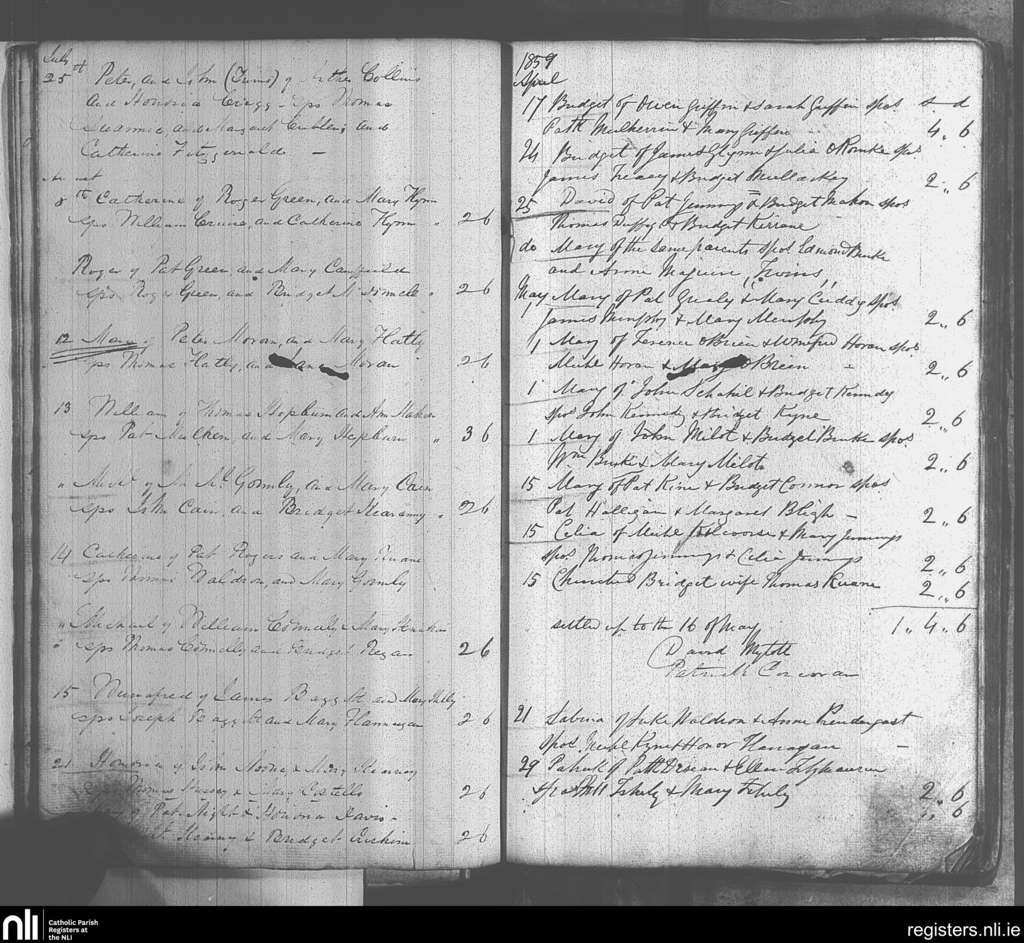 July
25th Peter, and John (Twins) of Collins
and Honoria Gregg - Sps Thomas
and Margaret and
Catherine Fitzgerald -
8th Catherine of Roger Green, and Mary Flynn
Sps William and Catherine Flynn " 2 6
Roger of Pat Green, and Mary Canfield
Sps Roger Green, and Bridget " 2 6
12 Mary of Peter Moran, and Mary Flatly
Sps Thomas Flatly, and Moran 2 6
13 William of Thomas Hepburn and Ann
Sps Pat and Mary Hepburn " 3 6
" of Mc Gormly, and Mary Cain
Sps John Cain, and Bridget Kearany " 2 6
14 Catherine of Pat Rogers and Mary
Sps Waldron and Mary Gormly
" Michael of William Connelly & Mary
" Sps Thomas Connelly and Bridget Regan 2 6
15 Winnifred of James Baggott and Mary
Sps Joseph Baggott and Mary Flannagan 2 6
21 Honoria of John Moone & Mary Kearney
Thomas & Mary Costello 2 6
of Pat & Honoria Davis -
& Bridget 2 6
1859
April
17 Bridget of Owen Griffin & Sarah Griffin spos s - d
Patk Mulkerrin & Mary Griffin 4 " 6
24 Bridget of James Glynn & Julia O Rourke spos
James Treacy & Bridget Mullarkey 2 " 6
25 David of Pat Jennings & Bridget Mahon spos
Thomas Duffy & Bridget Kirrane
do Mary of the same parents spos Edmond Burke
and Anne Maguire, "Twins"
May Mary of Pat Grealy & Mary Cuddy spos
1 James Murphy & Mary Murphy 2 " 6
1 Mary of Terence O Brien & Winifred Horan spos
Michl Horan & Mary O Brien " 2 " 6
1 Mary of John & Bridget Kennedy
spos John Kennedy & Bridget Kyne 2 " 6
1 Mary of John Milot & Bridget Burke spos
Wm Burke & Mary Milot 2 " 6
15 Mary of Pat Kine & Bridget Connor spos
Pat Halligan & Margaret Bligh - 2 " 6
15 Celia of Michl & Mary Jennings
spos Thomas Jennings & Celia Jennings 2 " 6
15 Churched Bridget wife Thomas Ruane 2 " 6
settled up to the 16 of May 1 " 4 " 6
David Mylott
Patrick Corcoran
21 Sabina of Luke Waldron & Anne Prendergast
spos Michl Kyne & Honor Flanagan -
29 Patrick of Patk & Ellen Fitzmaurice
spos & Mary 2 " 6
" 6
nli Catholic Parish
Registers at
the NLI
registers.nli.ie